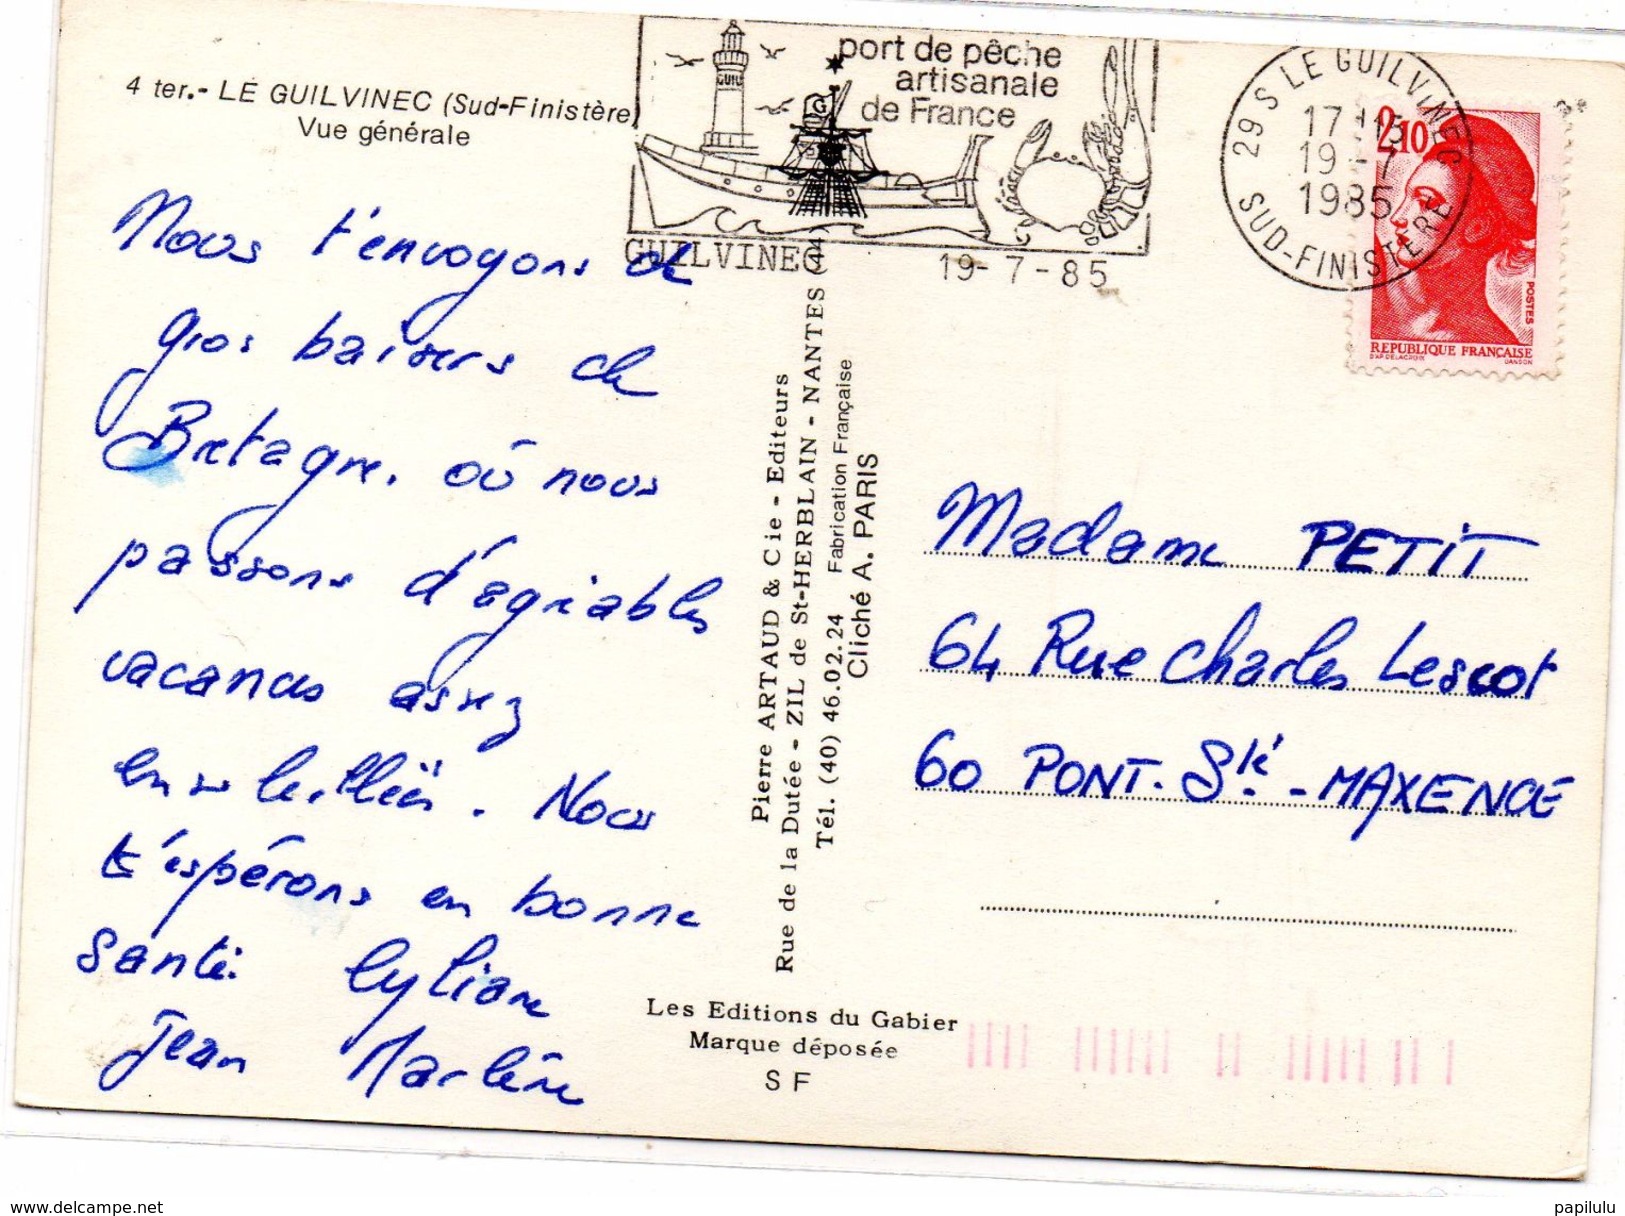 4 ter.- LE GUILVINEC (Sud-Finistère)
Vue générale
port de pêche
artisanale
de France
GUIL
G
GUILVINEC
19-7-85
29 S LE GUILVINEC
17 H 15
19 - 7
1985
SUD-FINISTERE
2,10
POSTES
REPUBLIQUE FRANÇAISE
D'AP. DELACROIX GANDON
Nous t'envoyons de
gros baisers de
Bretagne, où nous
passons d'agréables
vacances assez
ensoleillées. Nous
t'espérons en bonne
santé. Lyliane
Jean Marlène
Pierre ARTAUD & Cie - Editeurs
Rue de la Dutée - ZIL de St-HERBLAIN - NANTES (44)
Tél. (40) 46.02.24 Fabrication Française
Cliché A. PARIS
Madame PETIT
64 Rue Charles Lescot
60 PONT. Ste - MAXENCE
Les Editions du Gabier
Marque déposée
S F
delcampe.net
papilulu